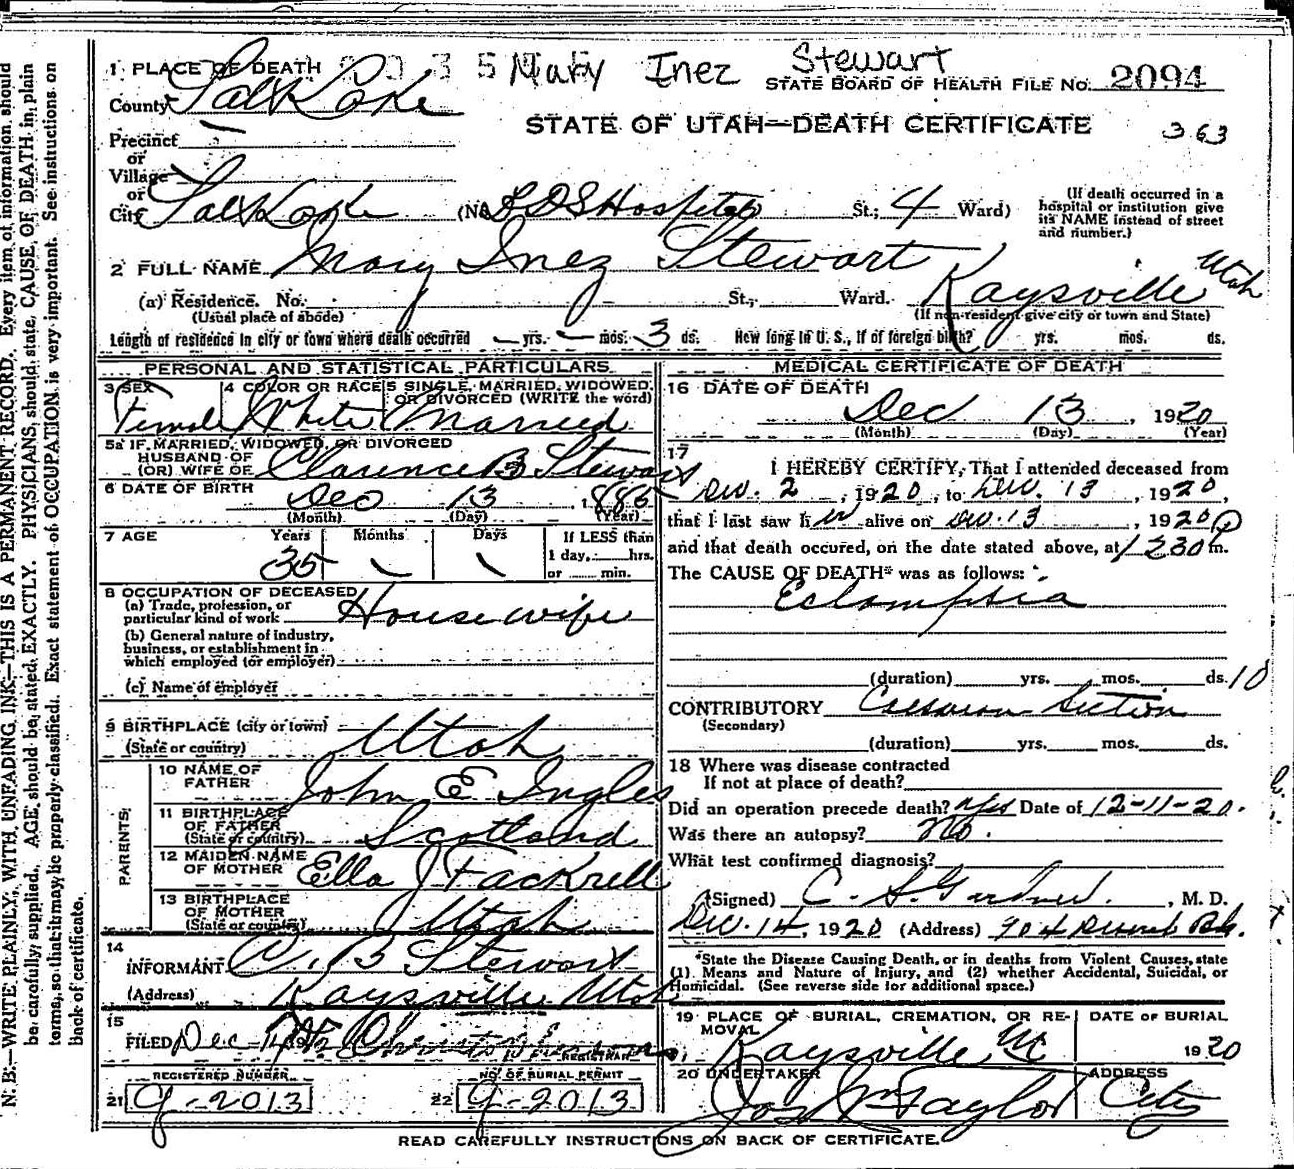 Mary Inez Stewart
1 PLACE OF DEATH
STATE BOARD OF HEALTH FILE NO. 2094
County Salt Lake
STATE OF UTAH—DEATH CERTIFICATE 363
Precinct
or
Village
or
City Salt Lake (No. LDS Hospital St.; 4 Ward)
(If death occurred in a
hospital or institution give
its NAME instead of street
and number.)
2 FULL NAME Mary Inez Stewart
(a) Residence. No. St., Ward. Kaysville Utah
(Usual place of abode) (If non-resident give city or town and State)
Length of residence in city or town where death occurred — yrs. — mos. 3 ds. How long in U. S., if of foreign birth? yrs. mos. ds.
PERSONAL AND STATISTICAL PARTICULARS
3 SEX 4 COLOR OR RACE 5 SINGLE, MARRIED, WIDOWED,
OR DIVORCED (WRITE the word)
Female White Married
5a IF MARRIED, WIDOWED, OR DIVORCED
HUSBAND OF
(OR) WIFE OF Clarence B Stewart
6 DATE OF BIRTH Dec 13, 1885
(Month) (Day) (Year)
7 AGE Years Months Days If LESS than
1 day, hrs.
or min.
35 — —
8 OCCUPATION OF DECEASED
(a) Trade, profession, or
particular kind of work Housewife
(b) General nature of industry,
business, or establishment in
which employed (or employer)
(c) Name of employer
9 BIRTHPLACE (city or town)
(State or country) Utah
PARENTS
10 NAME OF
FATHER John E Ingles
11 BIRTHPLACE
OF FATHER
(State or country) Scotland
12 MAIDEN NAME
OF MOTHER Ella J Fackrell
13 BIRTHPLACE
OF MOTHER
(State or country) Utah
14
INFORMANT C. B Stewart
(Address) Kaysville Utah
15
FILED Dec
REGISTRAR
REGISTERED NUMBER NO. OF BURIAL PERMIT
21 9-2013 22 9-2013
MEDICAL CERTIFICATE OF DEATH
16 DATE OF DEATH
Dec 13, 1920
(Month) (Day) (Year)
17
I HEREBY CERTIFY, That I attended deceased from
Dec. 2, 1920, to Dec. 13, 1920,
that I last saw her alive on Dec. 13, 1920
and that death occured, on the date stated above, at 1230 m.
The CAUSE OF DEATH* was as follows:
Eclampsia
(duration) yrs. mos. ds. 10
CONTRIBUTORY Cesarean Section
(Secondary)
(duration) yrs. mos. ds.
18 Where was disease contracted
If not at place of death?
Did an operation precede death? Yes Date of 12-11-20.
Was there an autopsy? No.
What test confirmed diagnosis?
(Signed) C. S. Gardner., M. D.
Dec. 14, 1920 (Address) 704 Deseret Blg.
*State the Disease Causing Death, or in deaths from Violent Causes, state
(1) Means and Nature of Injury, and (2) whether Accidental, Suicidal, or
Homicidal. (See reverse side for additional space.)
19 PLACE OF BURIAL, CREMATION, OR RE-
MOVAL DATE OF BURIAL
Kaysville Ut 1920
20 UNDERTAKER ADDRESS
Jos Wm Taylor City
READ CAREFULLY INSTRUCTIONS ON BACK OF CERTIFICATE.
N. B.—WRITE PLAINLY, WITH UNFADING INK—THIS IS A PERMANENT RECORD. Every item of information should
be carefully supplied. AGE should be stated EXACTLY. PHYSICIANS should state CAUSE OF DEATH in plain
terms, so that it may be properly classified. Exact statement of OCCUPATION is very important. See instructions on
back of certificate.